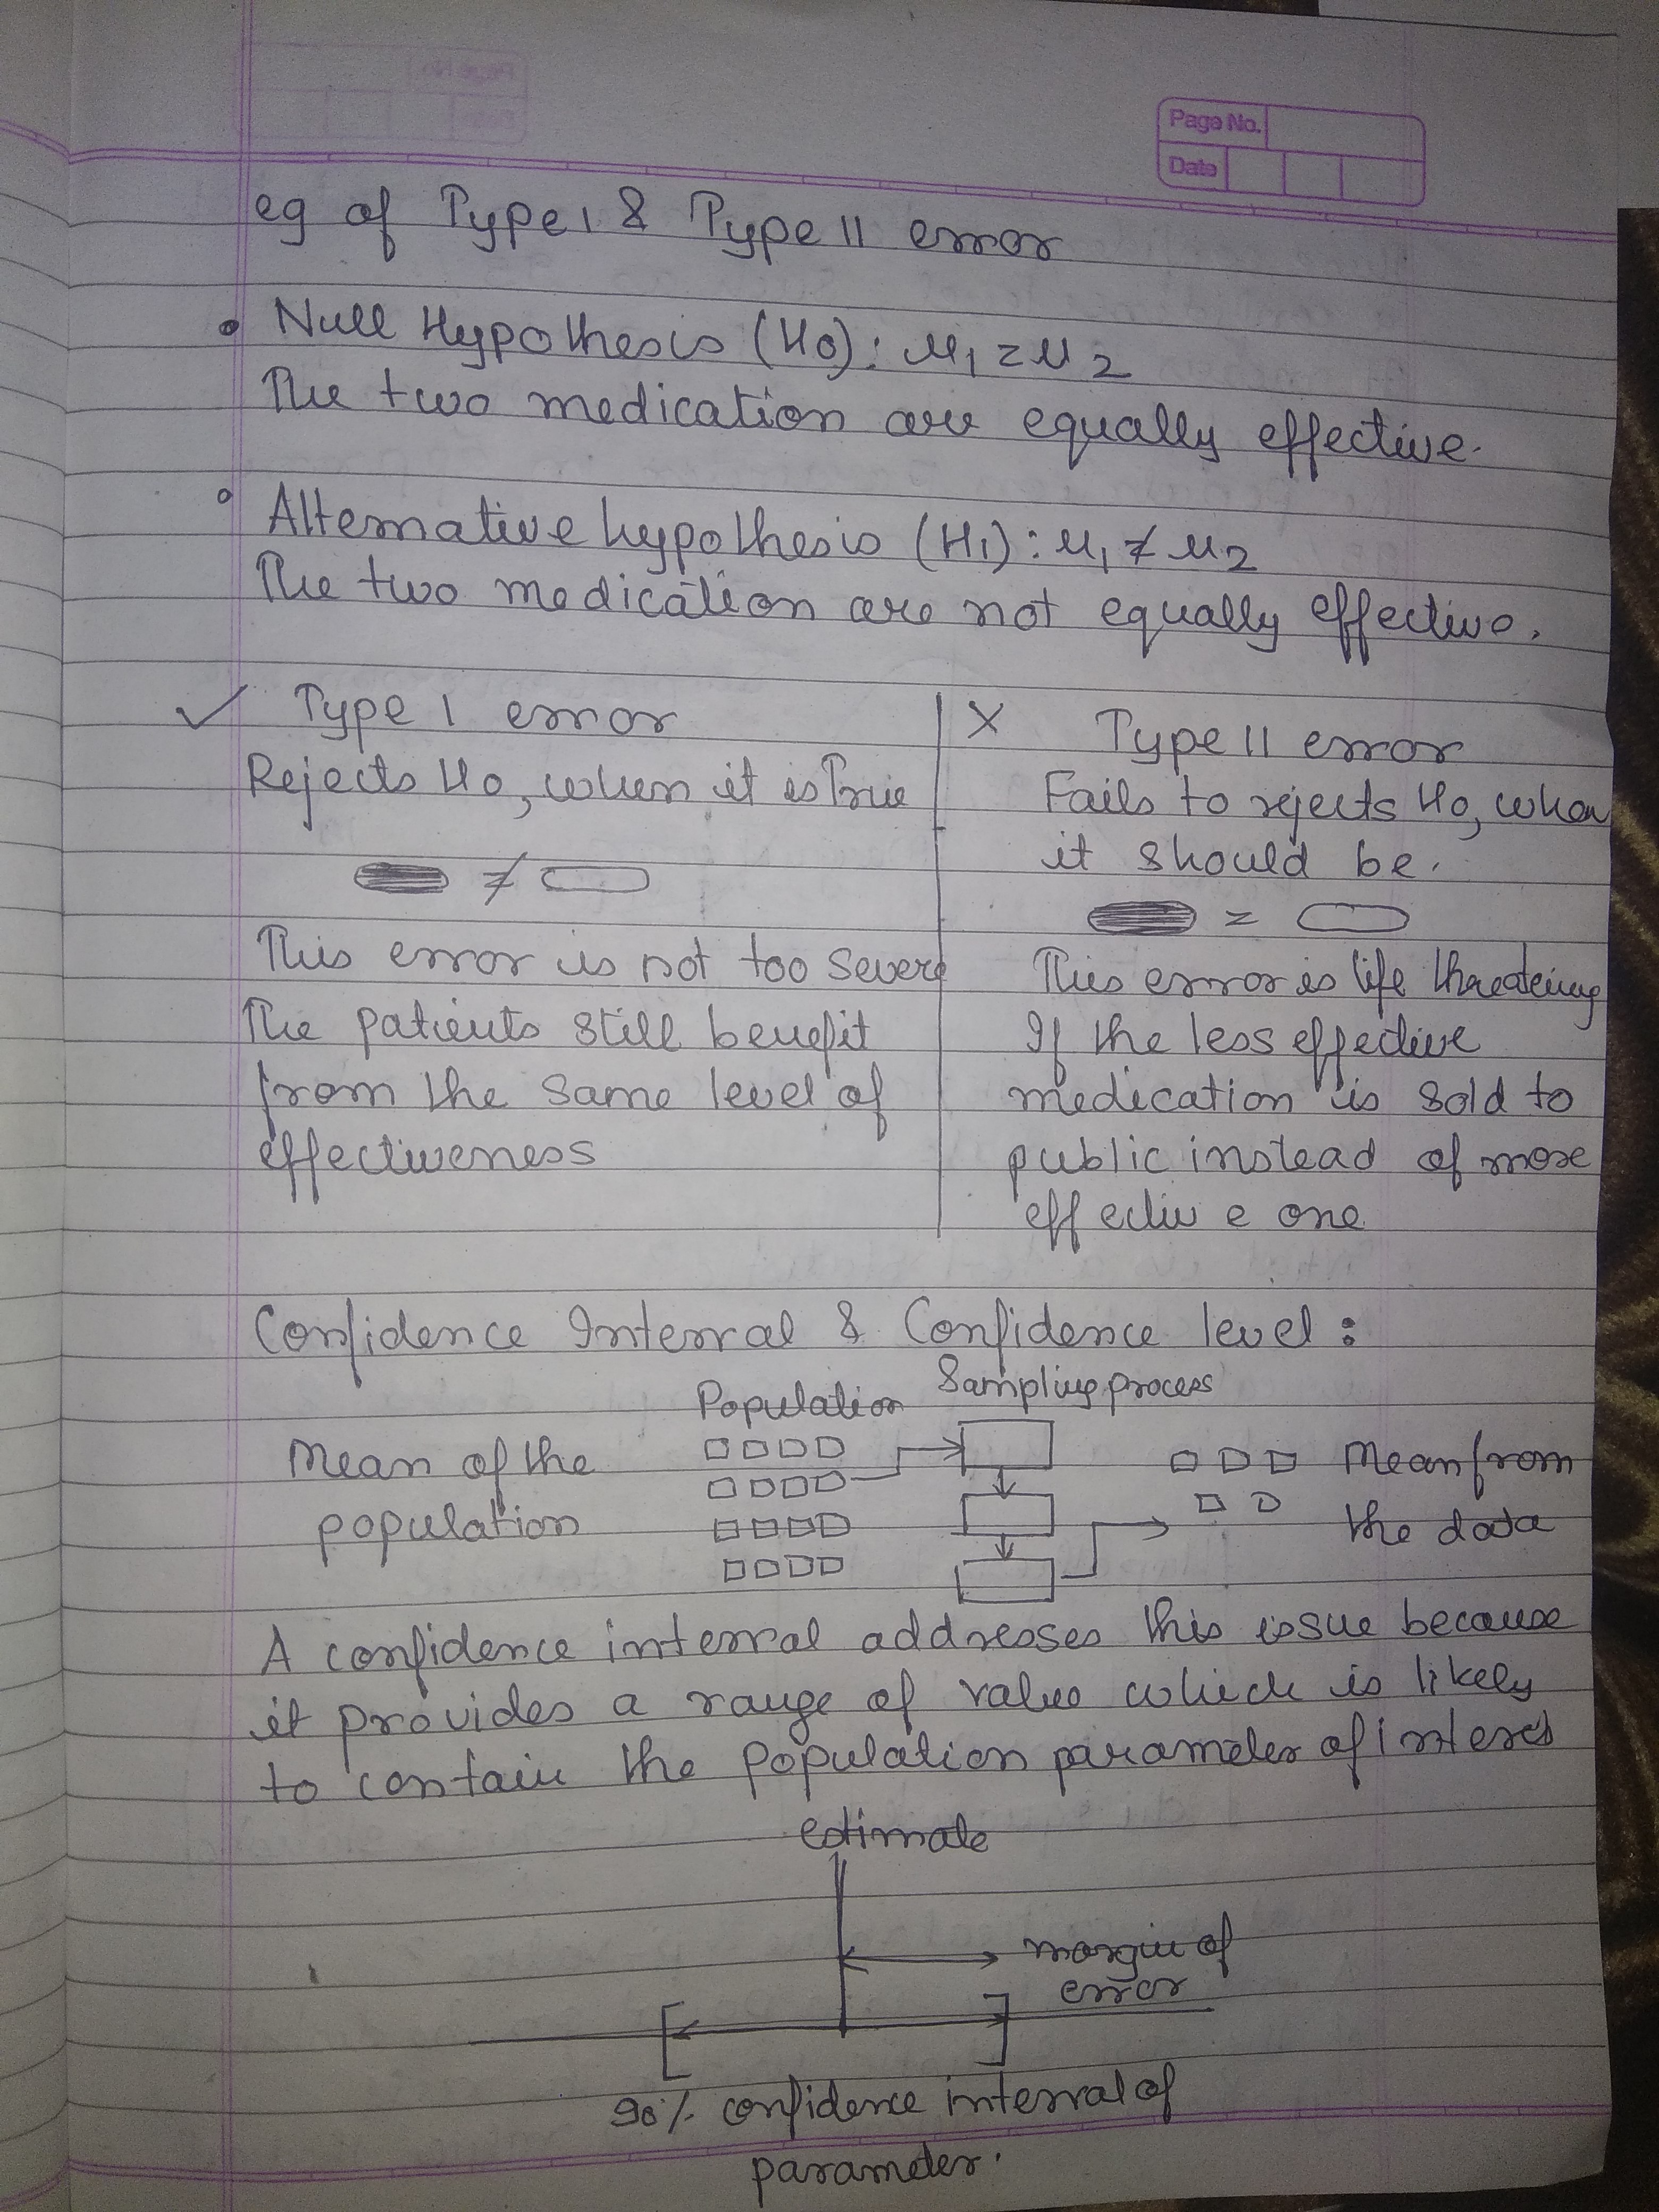 Page No.
Date
eg of Type I & Type II error
• Null Hypothesis (H0): μ1 = μ2
The two medication are equally effective.
° Alternative hypothesis (H1): μ1 ≠ μ2
The two medication are not equally effective.
✓ Type I error
Rejects H0, when it is True
≠
This error is not too severe
The patients still benefit
from the same level of
effectiveness
X Type II error
Fails to rejects H0, when
it should be.
=
This error is life threateing
If the less effective
medication is sold to
public instead of more
effective one
Confidence Interval & Confidence level :
Mean of the
population
Population
Sampling process
Mean from
the data
A confidence interval addresses this issue because
it provides a range of value which is likely
to contain the population parameter of interest
estimate
margin of
error
90% confidence interval of
parameter.